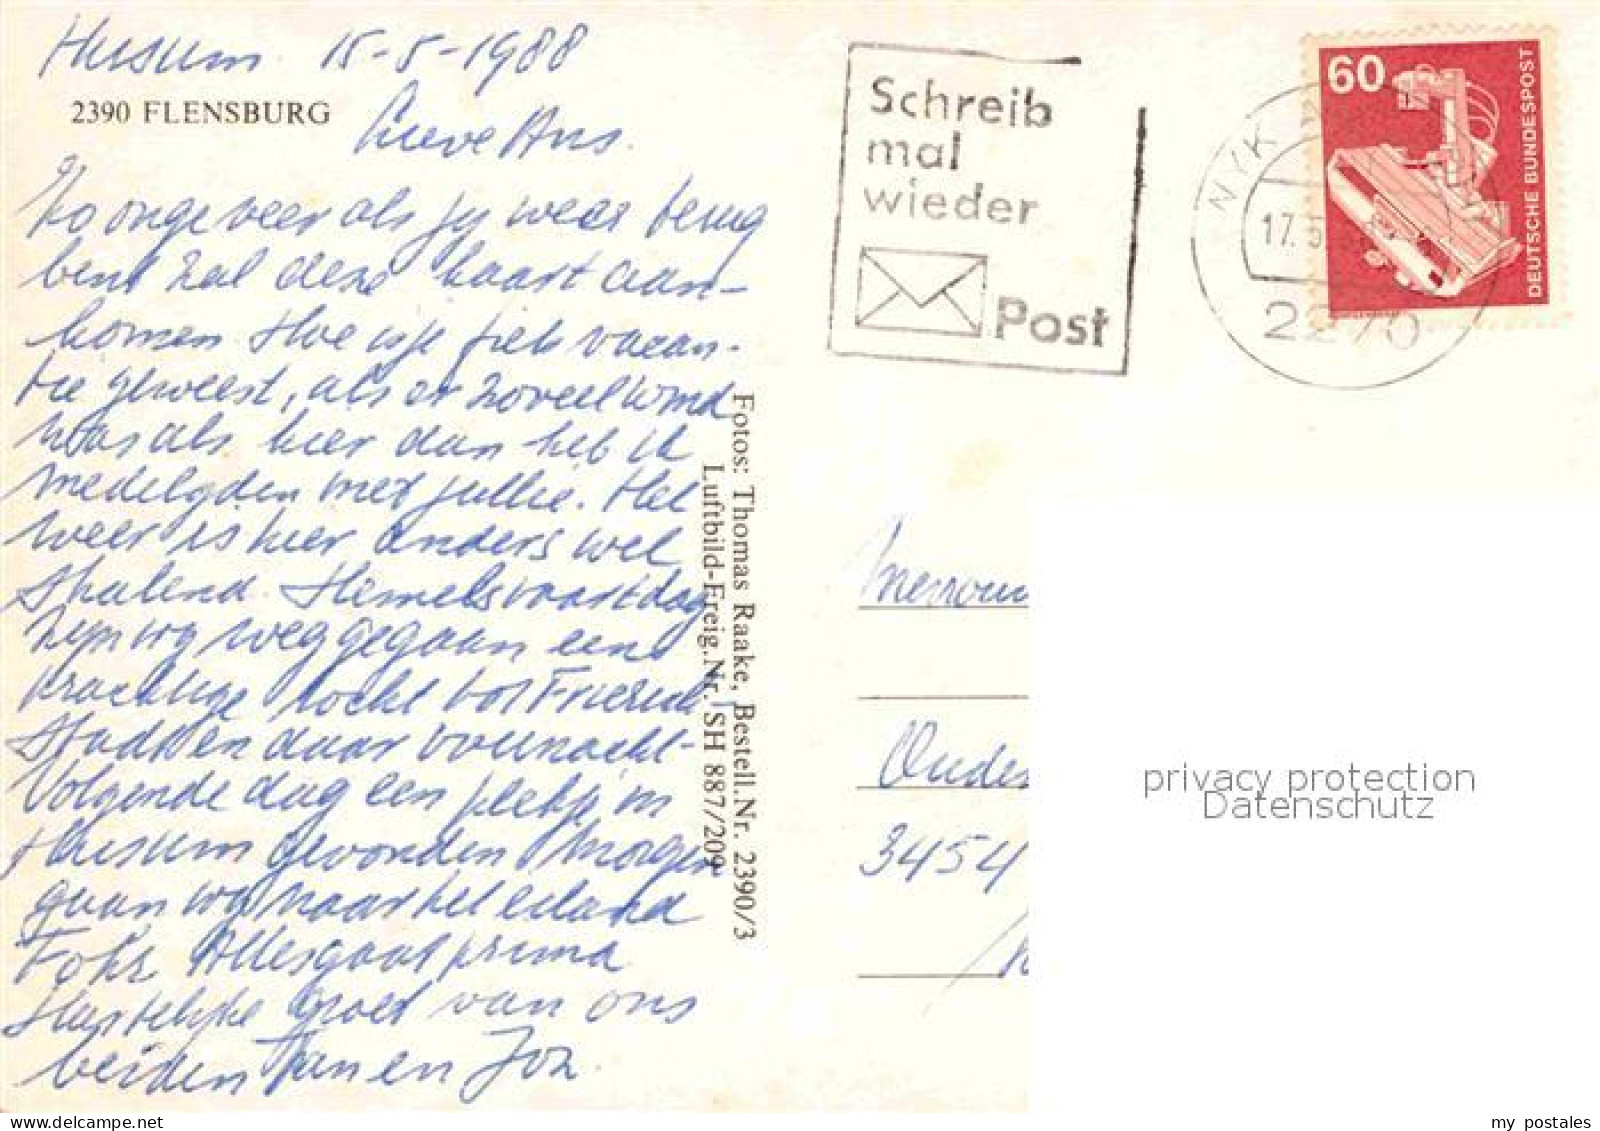 Husum 15-5-1988
2390 FLENSBURG
Lieve Ans.
Zo ongeveer als jy weer terug
bent zal deze kaart aan-
komen Hoe is je fiets vacan-
tie geweest, als er zoveel wind
was als hier dan heb ik
medelyden met jullie. Het
weer is hier anders wel
stralend. Hemelsvaartdag
zyn wy weggegaan een
prachtige tocht tot Friedrich
Stadt en daar overnacht-
Volgende dag een plekje in
Husum gevonden morgen
gaan wy naar het eiland
Fohr Alles gaat prima
Hartelyke groet van ons
beiden Jan en Joz
Fotos: Thomas Raake, Bestell.Nr. 2390/3
Luftbild-Freig.Nr. SH 887/209
Schreib
mal
wieder
Post
60
DEUTSCHE BUNDESPOST
WYK
17. 5
2270
Mevrouw
Oudes
3454
privacy protection
Datenschutz
my postales